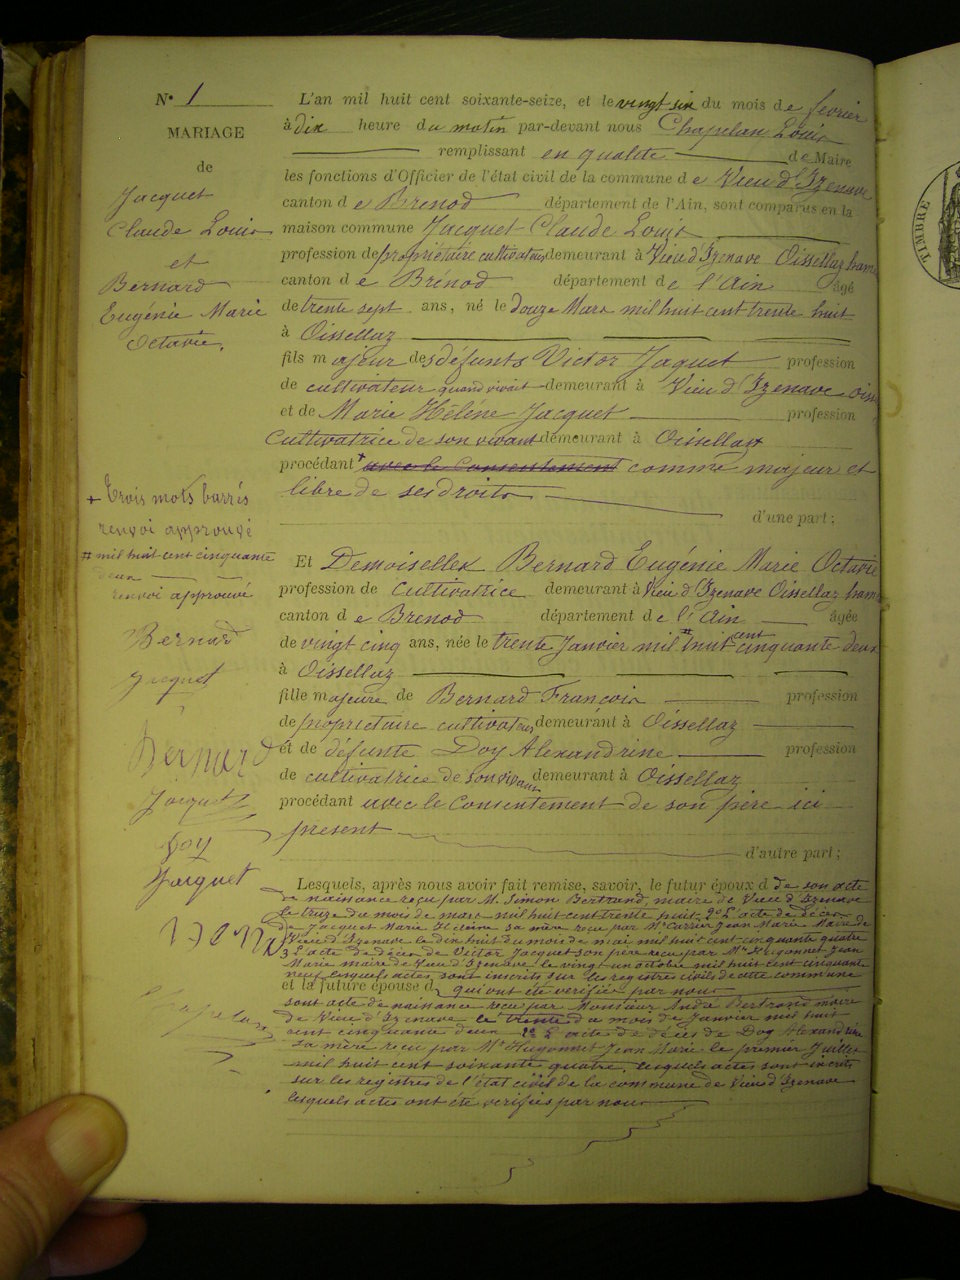 N° 1
MARIAGE
de
Jacquet
Claude Louis
et
Bernard
Eugénie Marie
Octavie.
+ Trois mots barrés
renvoi approuvé
# mil huit cent cinquante
deux
renvoi approuvé
Bernard
Jacquet
Bernard
Jacquet
Doy
Jacquet
L'an mil huit cent soixante-seize, et le vingt six du mois de fevrier
à dix heure du matin par-devant nous Chapelan Louis
remplissant en qualité de Maire
les fonctions d'Officier de l'état civil de la commune de Vieu d'Izenave
canton de Brenod département de l'Ain, sont comparus en la
maison commune Jacquet Claude Louis
profession de propriétaire cultivateur demeurant à Vieu d'Izenave Oissellaz ham
canton de Brénod département de l'Ain âgé
de trente sept ans, né le Douze Mars mil huit cent trente huit
à Oissellaz
fils majeur des défunts Victor Jaquet profession
de cultivateur quand vivait demeurant à Vieu d'Izenave oiss
et de Marie Héléne Jacquet profession
Cultivatrice de son vivant demeurant à Oissellaz
procédant + avec le Consentement comme majeur et
libre de ses droits
d'une part;
Et Demoiselle Bernard Eugénie Marie Octavie
profession de Cultivatrice demeurant à Vieu d'Izenave Oissellaz ham
canton de Brenod département de l'Ain âgée
de vingt cinq ans, née le trente Janvier mil # huit cent cinquante deux
à Oissellaz
fille majeure de Bernard François profession
de propriétaire cultivateur demeurant à Oissellaz
et de défunte Doy Alexandrine profession
de cultivatrice de son vivant demeurant à Oissellaz
procédant avec le Consentement de son père ici
present
d'autre part;
Lesquels, après nous avoir fait remise, savoir, le futur époux d de son acte
de naissance reçu par M. Simon Bertrand, maire de Vieu d'Izenave
le treize du mois de mars mil huit cent trente huit 2° L'acte de décès
de Jacquet Marie Héleine sa mère reçu par Mr Carrier Jean Marie Maire de
Vieu d'Izenave le dix huit du mois de mai mil huit cent cinquante quatre
3 L'acte de décès de Victor Jacquet son père reçu par Mr Hugonnet Jean
Marie maire de Vieu d'Izenave le vingt un octobre mil huit cent cinquante
neuf lesquels actes sont inscrits sur les registre civils de cette commune
et la future épouse d qui ont été verifiés par nous
sont acte de naissance reçu par Monsieur André Bertrand maire
de Vieu d'Izenave le trente du mois de Janvier mil huit
cent cinquante deux 2° L'acte de décès de Doy Alexandrine
sa mère reçu par Mr Hugonnet Jean Marie le premier Juillet
mil huit cent soixante quatre, lesquels actes sont inscrits
sur les registres de l'état civil de la commune de Vieu d'Izenave
lesquels actes ont été verifiés par nous
TIMBRE